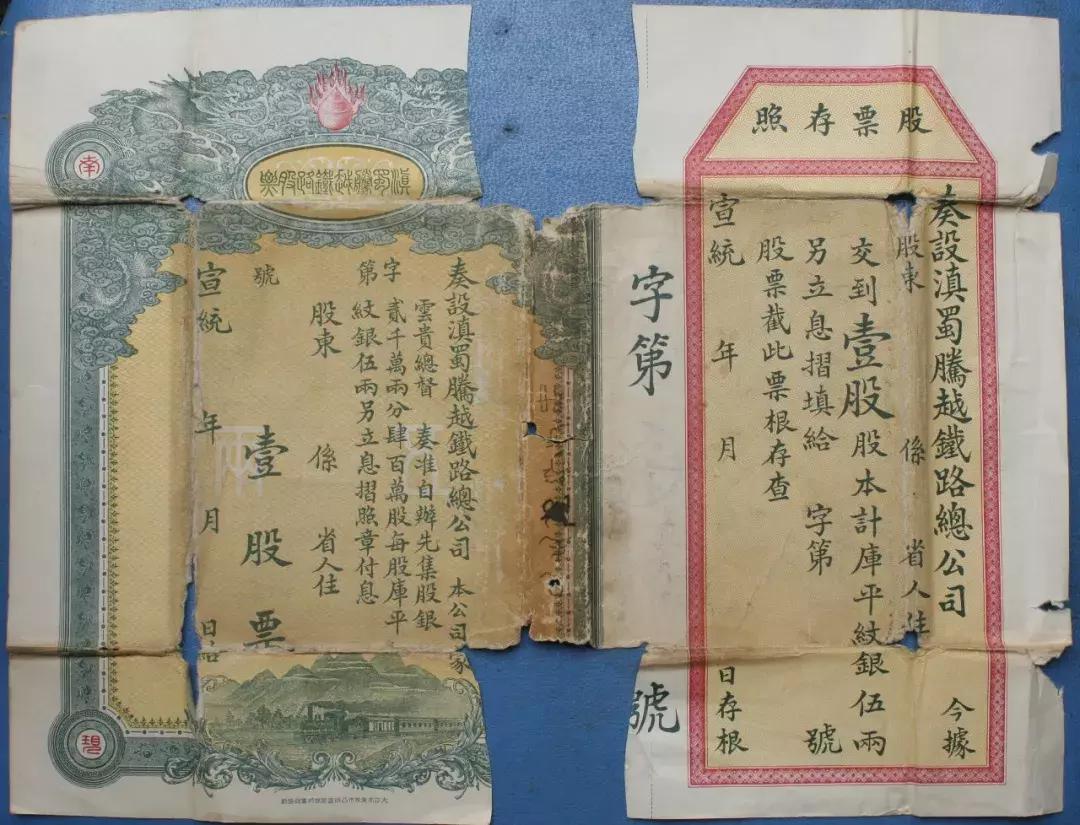 股票存照
奏設滇蜀騰越鐵路總公司 今據
股東 係 省人住
交到壹股股本計庫平紋銀伍兩
另立息摺填給 字第 號
股票截此票根存查
宣統 年 月 日存根
字第 號
滇蜀騰越鐵路股票
奏設滇蜀騰越鐵路總公司 本公司
雲貴總督 奏准自辦先集股銀
貳千萬兩分肆百萬股每股庫平
紋銀伍兩另立息摺照章付息
字第 號
股東 係 省人住
壹股票
宣統 年 月 日給